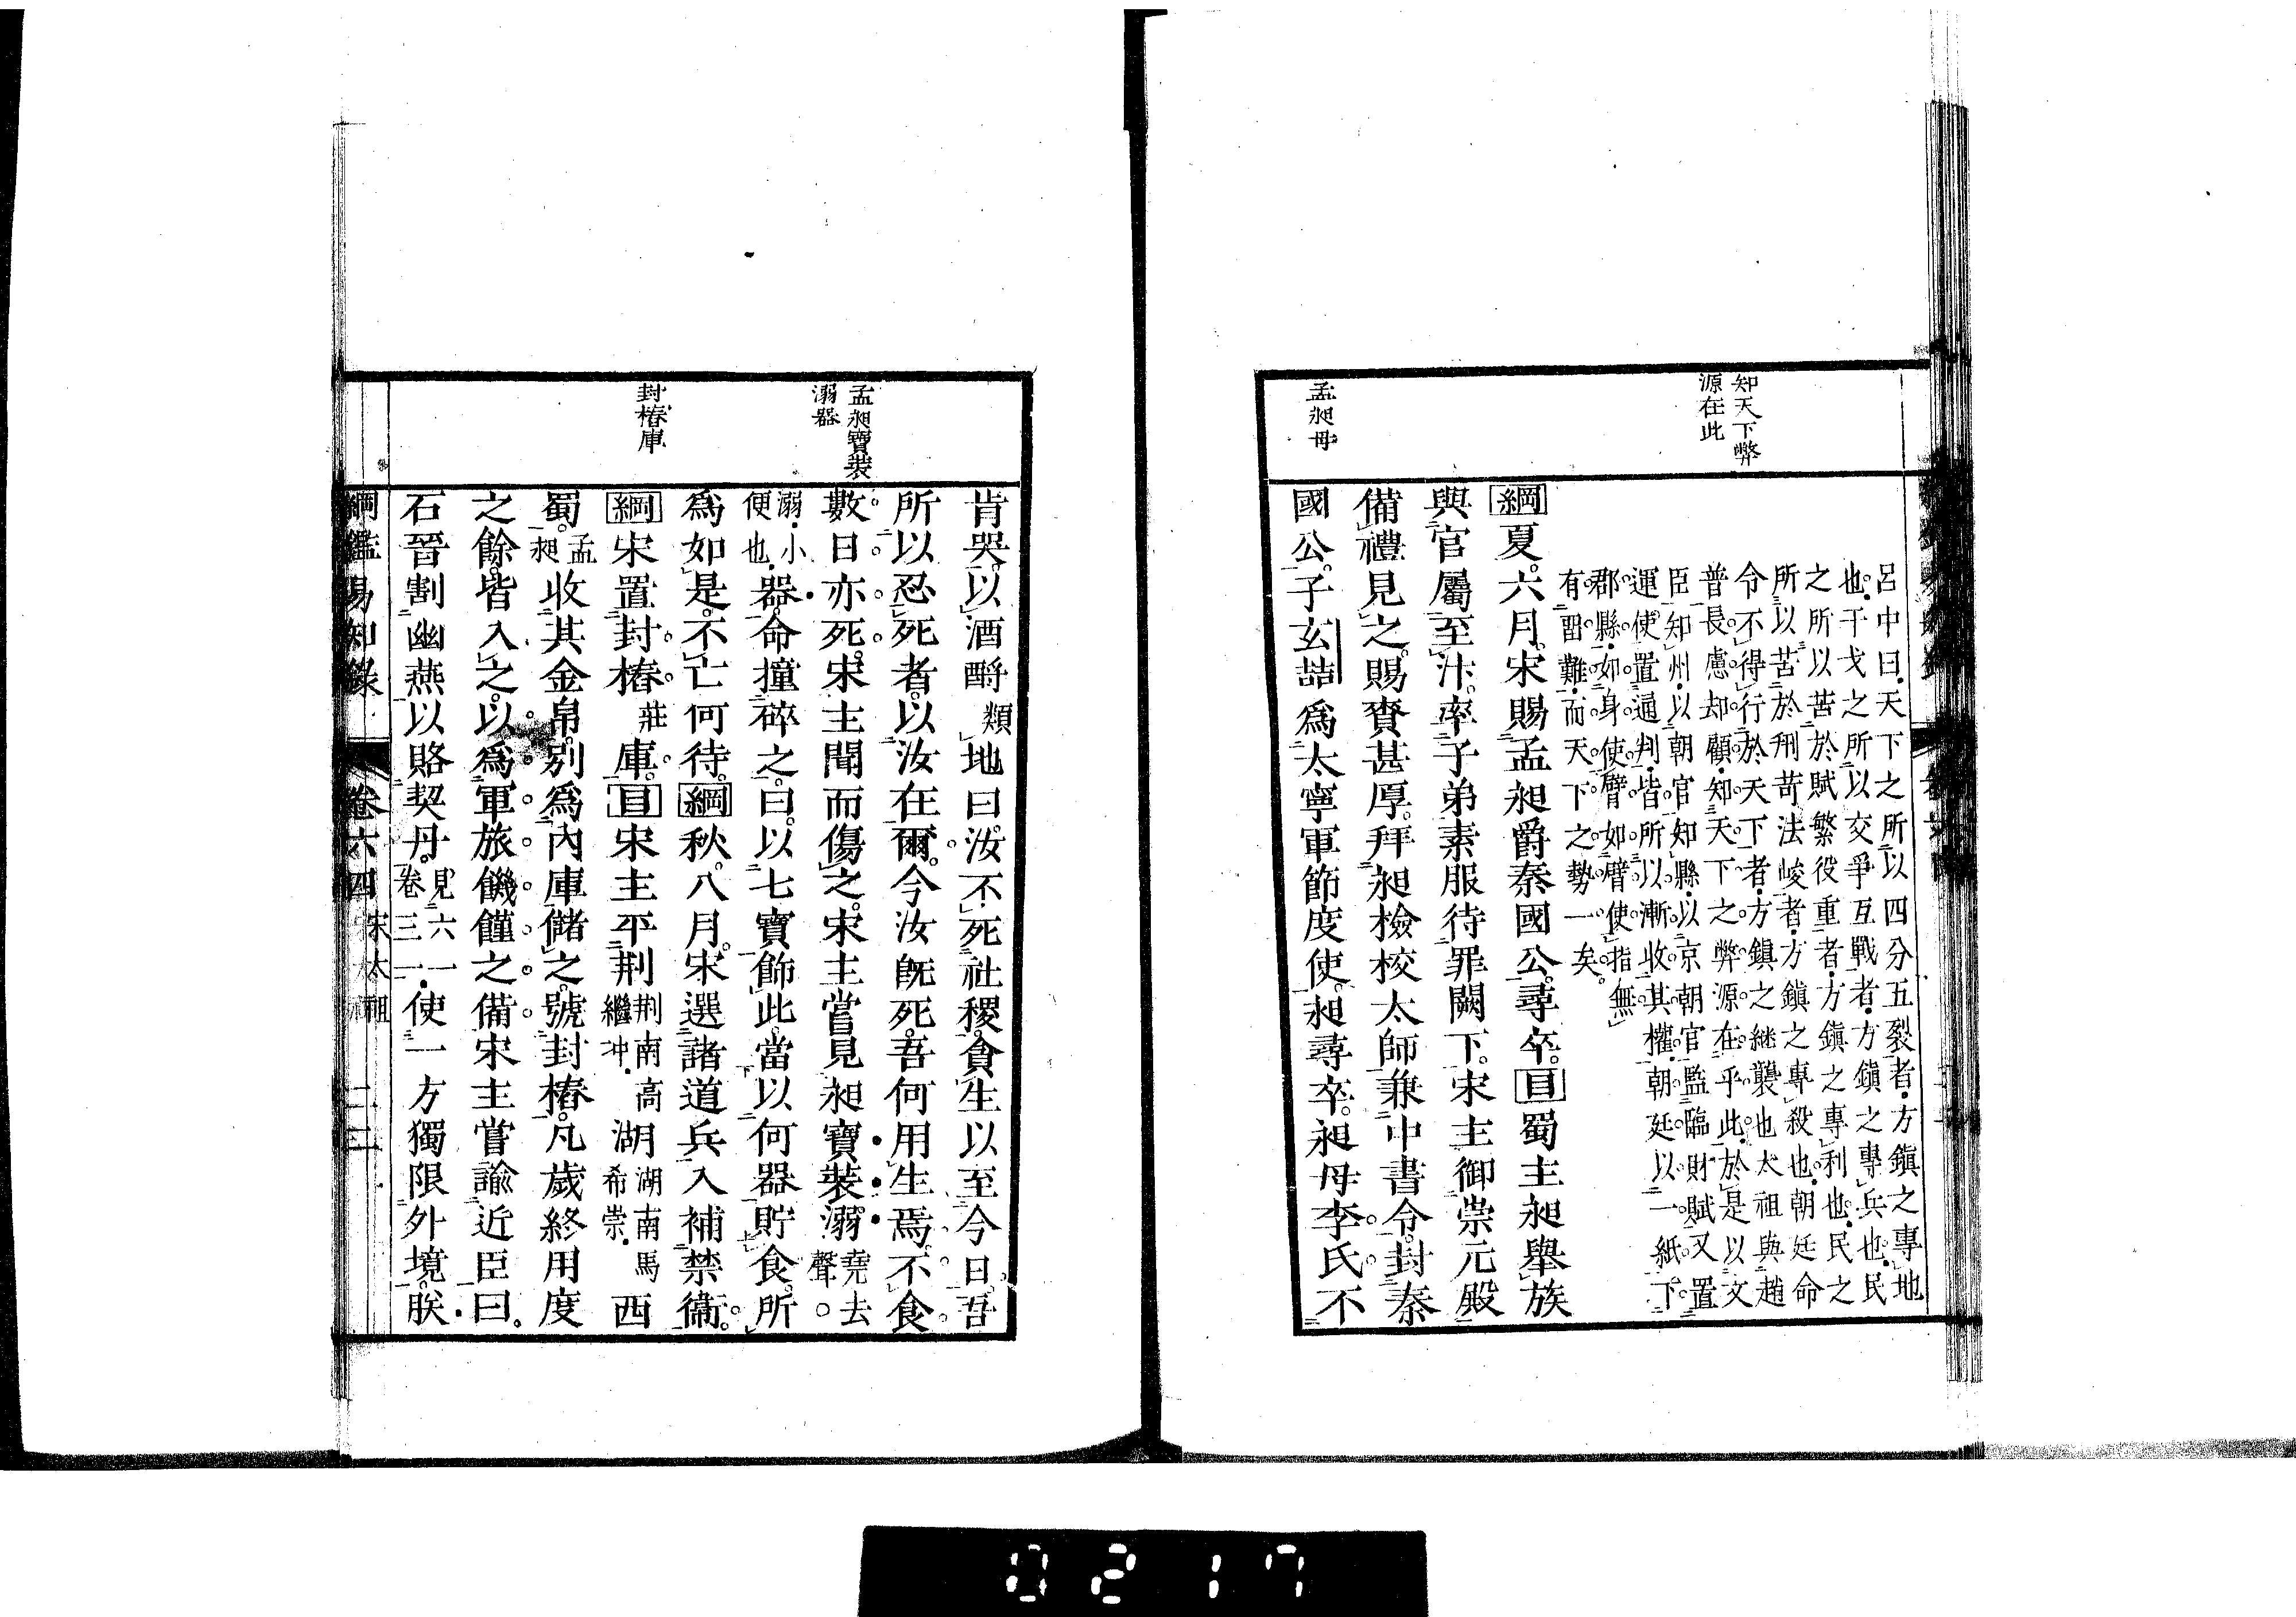 知天下弊
源在此
孟昶母
呂中曰天下之所以四分五裂者方鎮之專地
也干戈之所以交爭互戰者方鎮之專兵也民
之所以苦於賦繁役重者方鎮之專利也民之
所以苦於刑苛法峻者方鎮之專殺也朝廷命
令不得行於天下者方鎮之継襲也太祖與趙
普長慮却顧知天下之弊源在乎此於是以文
臣知州以朝官知縣以京朝官監臨財賦又置
運使置通判皆所以漸收其權朝廷以一紙下
郡縣如身使臂如臂使指無
有畱難而天下之勢一矣
綱夏六月宋賜孟昶爵秦國公尋卒目蜀主昶舉族
與官屬至汴率子弟素服待罪闕下宋主御崇元殿
備禮見之賜賚甚厚拜昶檢校太師兼中書令封秦
國公子玄喆爲太寧軍節度使昶尋卒昶母李氏不
孟昶寶裝
溺器
封樁庫
肯哭以酒酹類地曰汝不死社稷貪生以至今日吾
所以忍死者以汝在爾今汝旣死吾何用生焉不食
數日亦死宋主聞而傷之宋主嘗見昶寶裝溺堯去聲○
溺小便也器命撞碎之曰以七寶飾此當以何器貯食所
爲如是不亡何待綱秋八月宋選諸道兵入補禁衞
綱宋置封樁莊庫目宋主平荆荆南高繼冲湖湖南馬希崇西
蜀孟昶收其金帛別爲內庫儲之號封樁凡歲終用度
之餘皆入之以爲軍旅饑饉之備宋主嘗諭近臣曰
石晉割幽燕以賂契丹見六一卷三一使一方獨限外境朕
綱鑑易知錄 卷六四 宋太祖 二三
0217